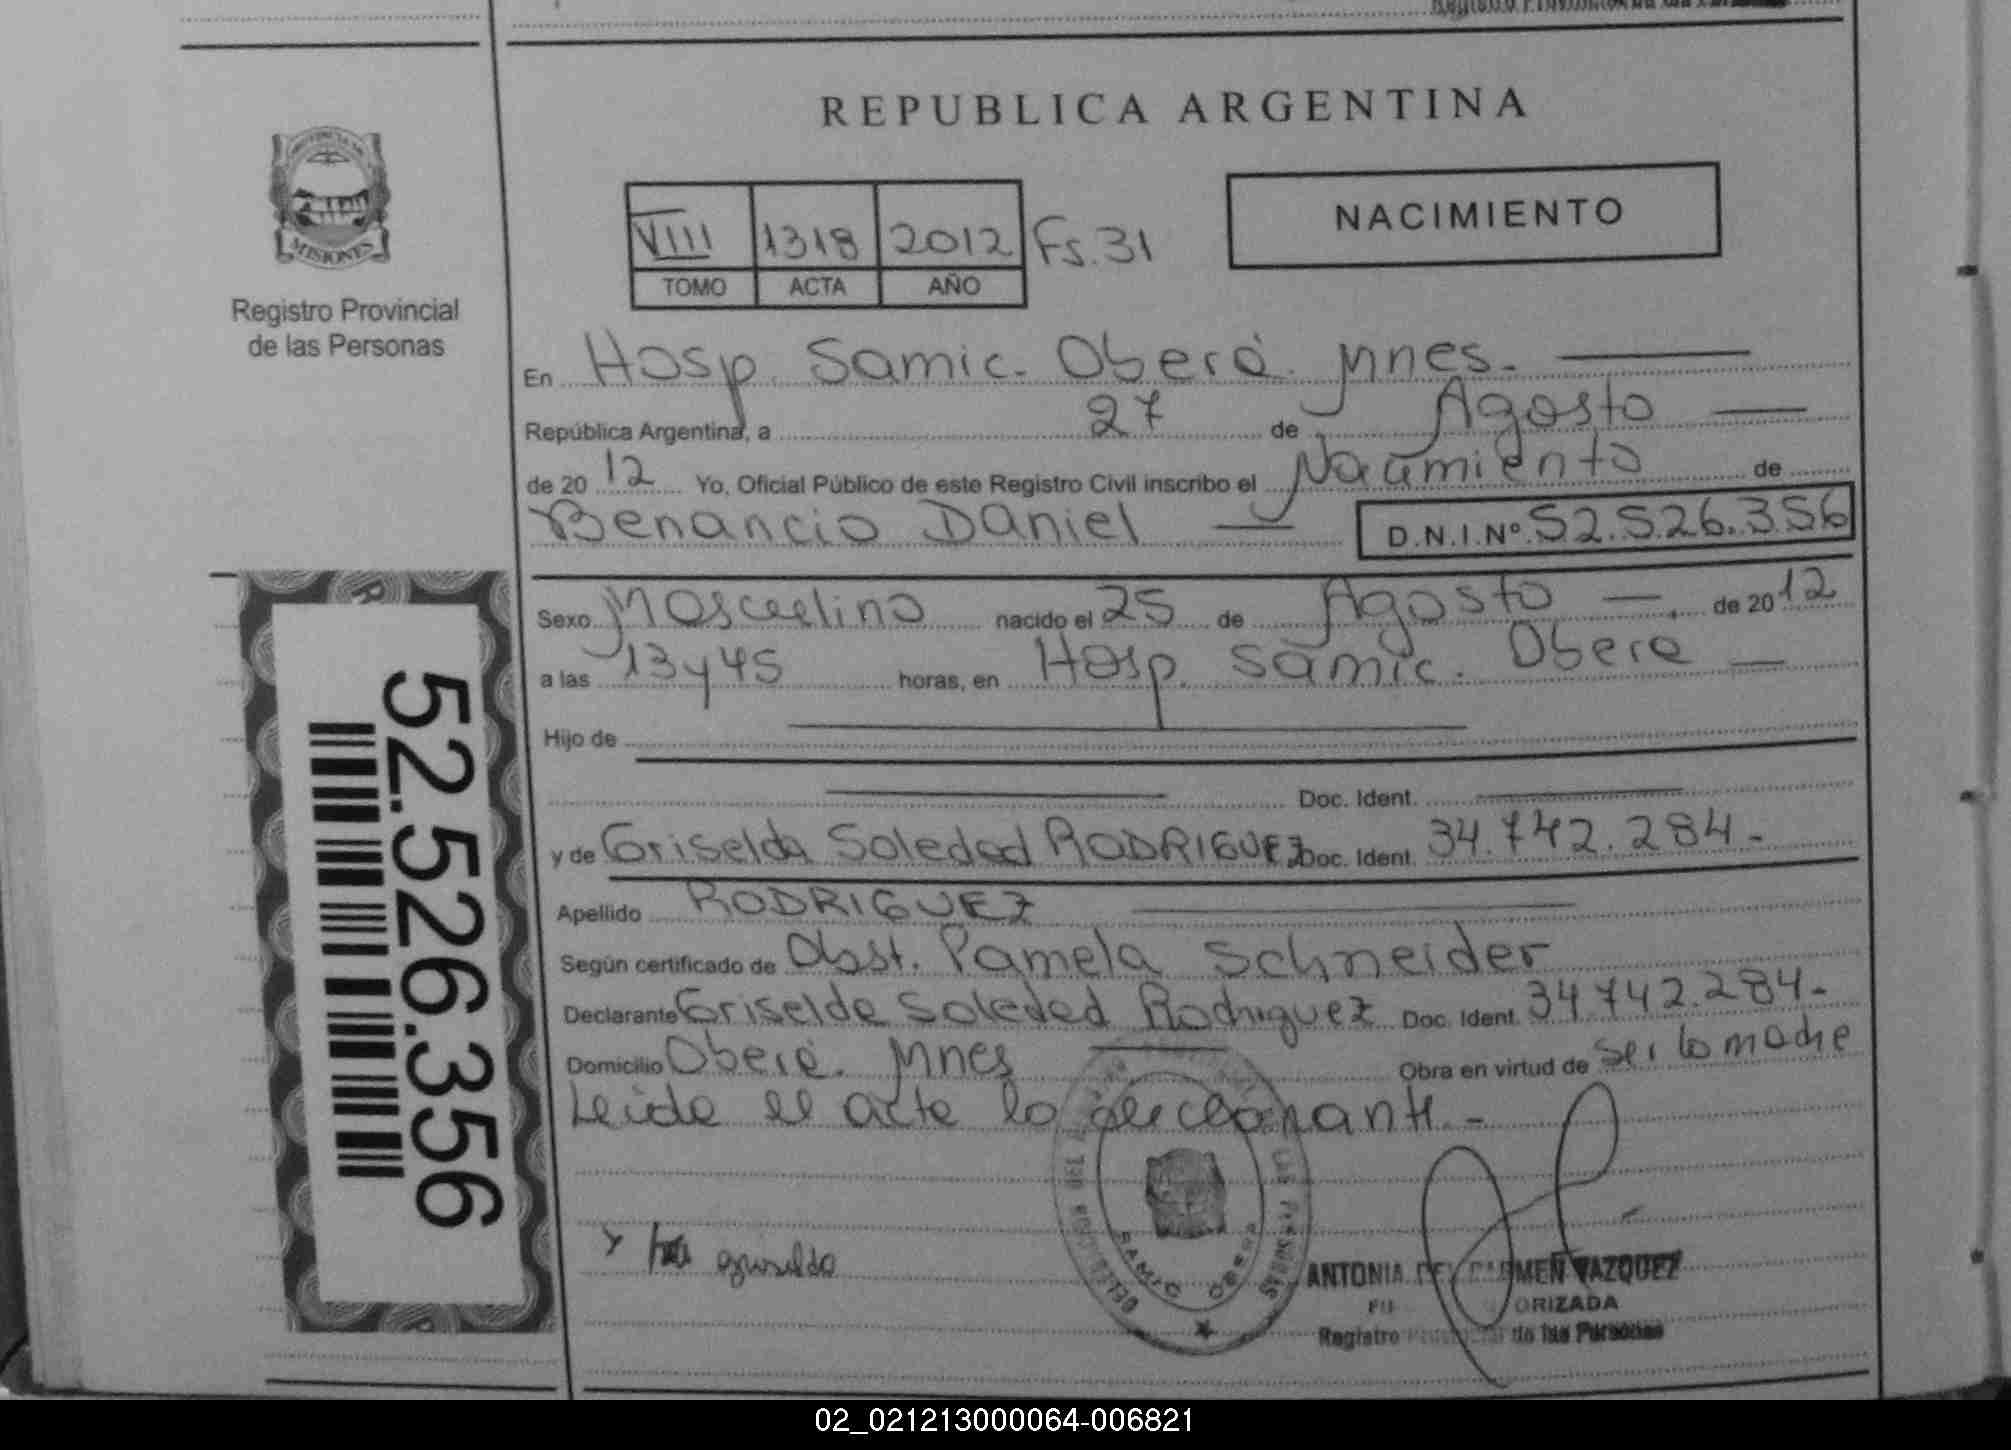 REPUBLICA ARGENTINA
MISIONES
Registro Provincial
de las Personas
VIII 1318 2012 Fs. 31
TOMO ACTA AÑO
NACIMIENTO
En Hosp. Samic. Oberá. Mnes.
República Argentina, a 27 de Agosto
de 2012 Yo, Oficial Público de este Registro Civil inscribo el Nacimiento de
Benancio Daniel D.N.I.Nº 52.526.356
Sexo Masculino nacido el 25 de Agosto de 2012
a las 13 y 45 horas, en Hosp. Samic. Oberá
Hijo de
Doc. Ident.
y de Griselda Soledad RODRIGUEZ Doc. Ident. 34.742.284.-
Apellido RODRIGUEZ
Según certificado de Obst. Pamela Schneider
Declarante Griselda Soledad Rodriguez Doc. Ident. 34.742.284.-
Domicilio Oberá. Mnes Obra en virtud de ser la madre
Leida el acta la
griselda
SAMIC OBERA
LAS PERSONAS
ANTONIA DEL CARMEN VAZQUEZ
ORIZADA
Registro Provincial de las Personas
52.526.356
02_021213000064-006821